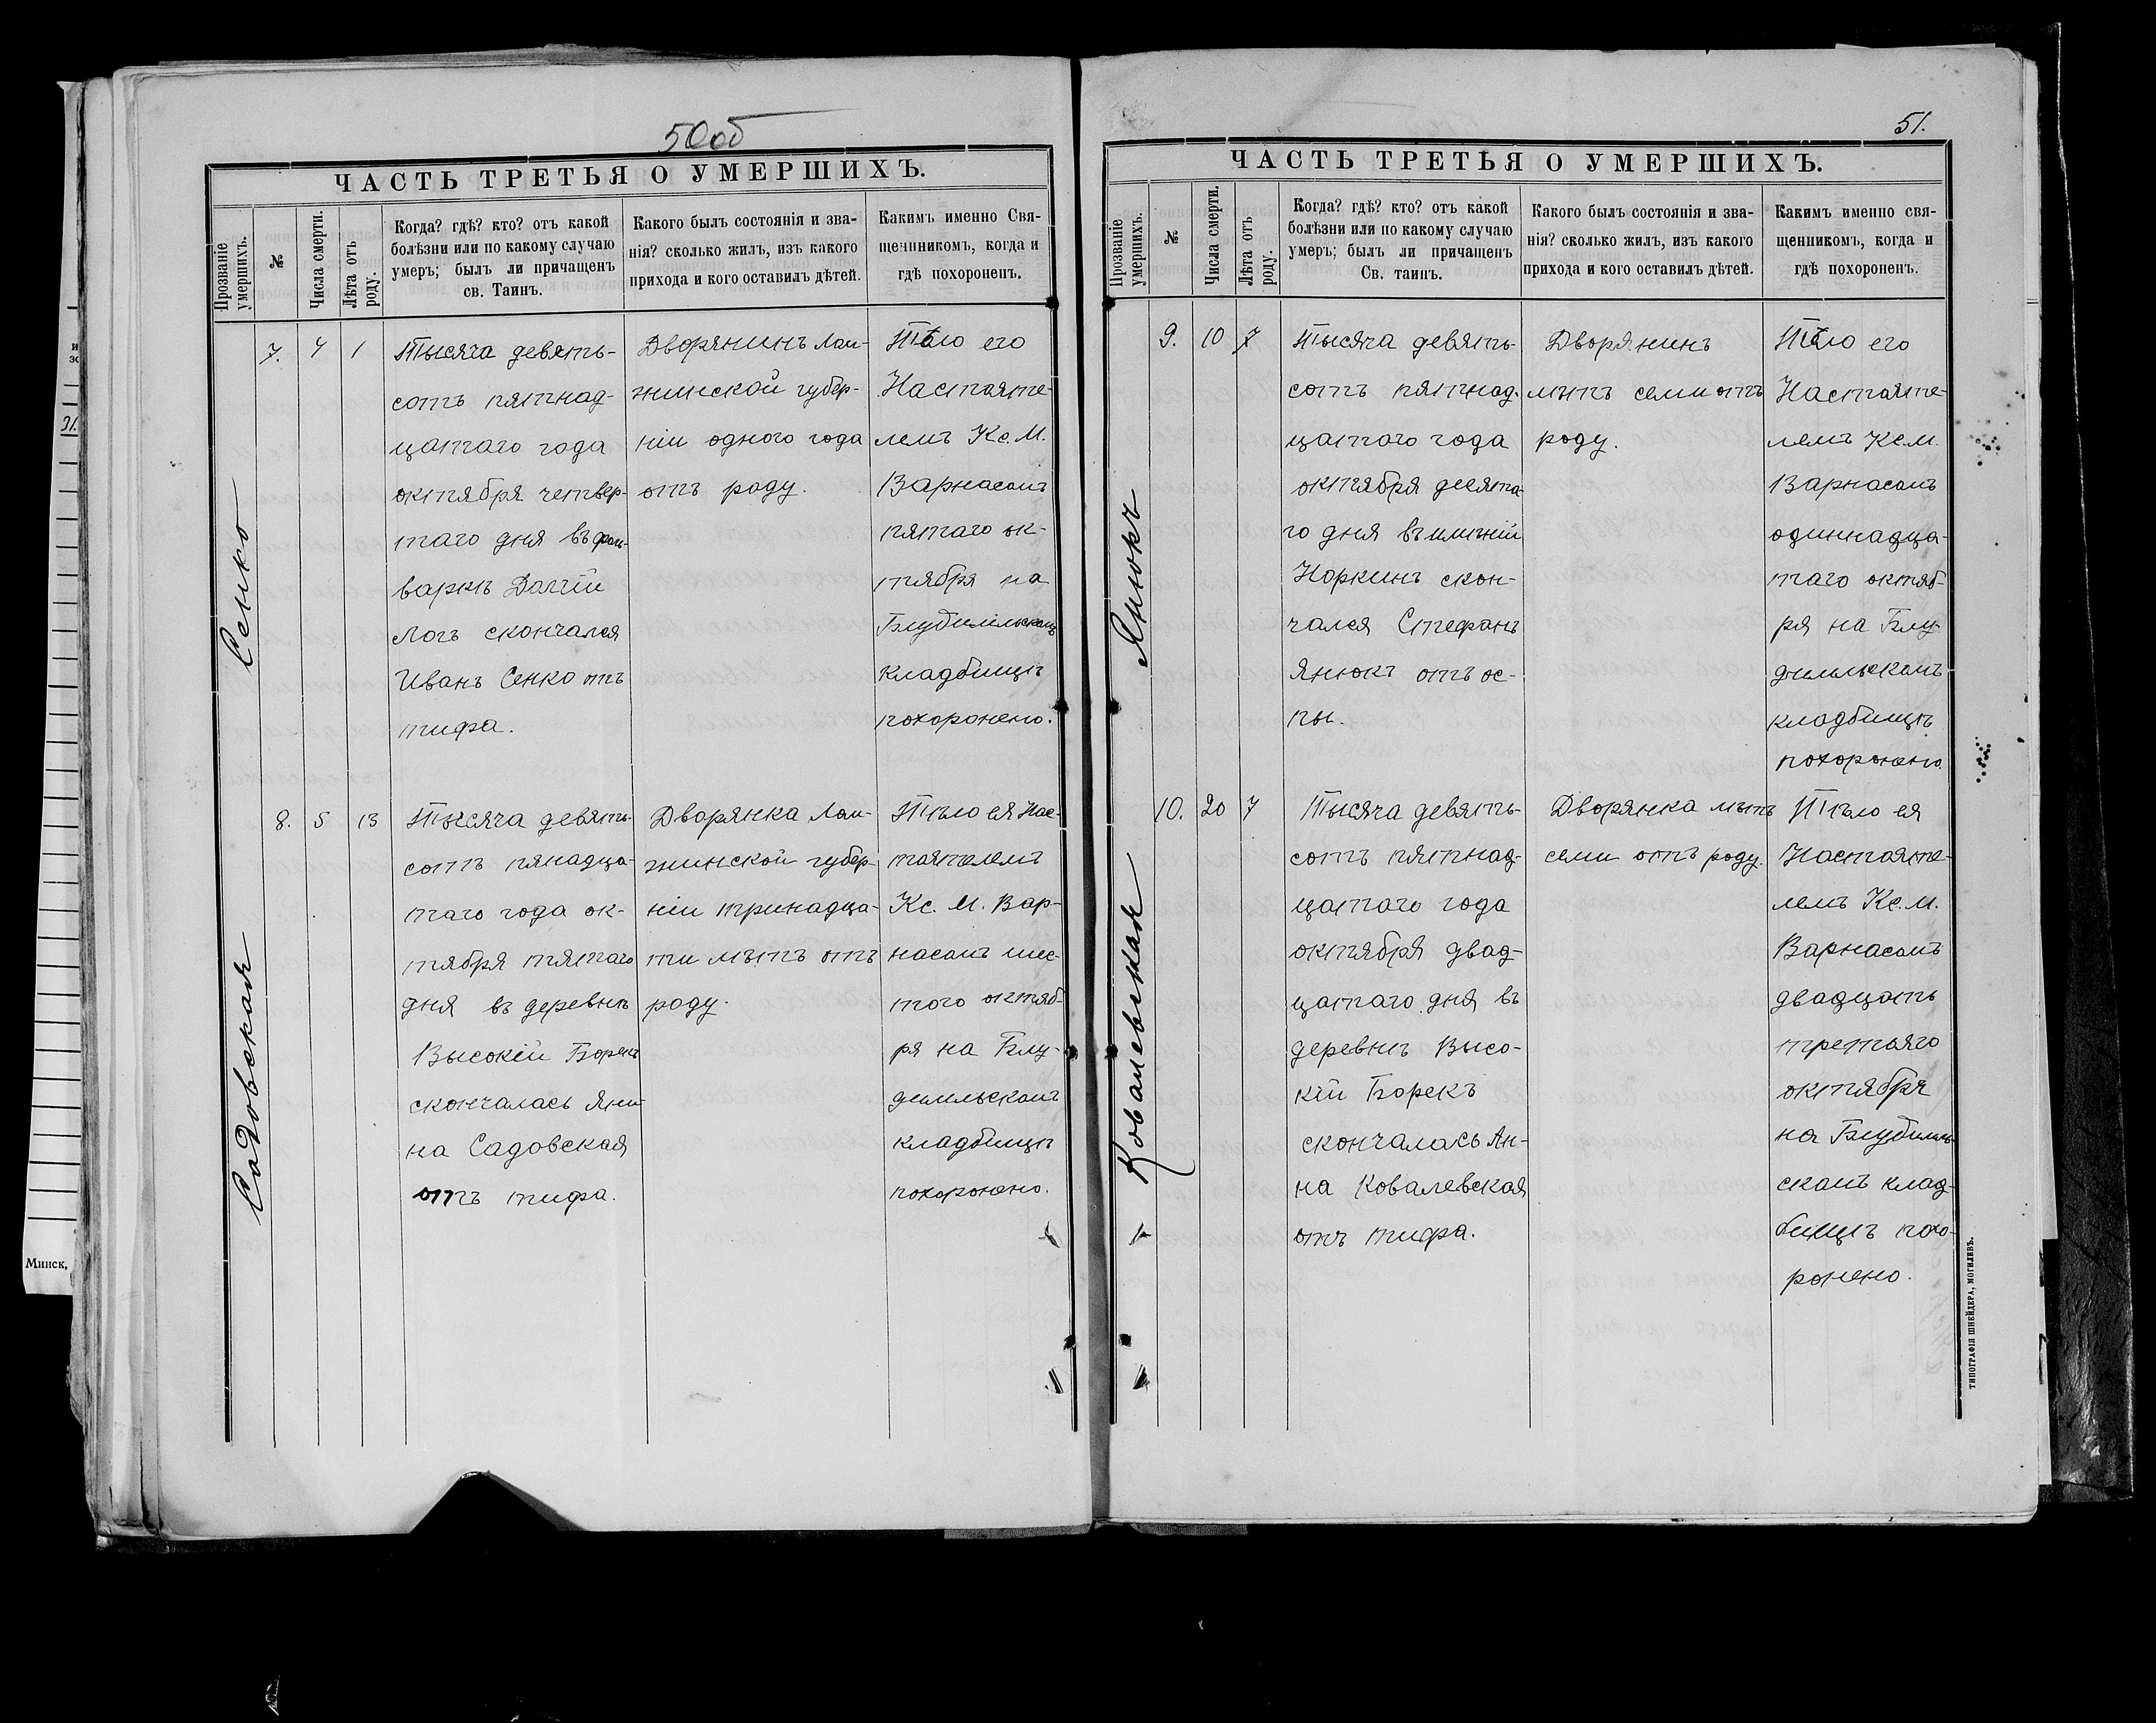 50об
ЧАСТЬ ТРЕТЬЯ О УМЕРШИХЪ.
Прозваніе умершихъ.
№
Числа смерти.
Лѣта отъ роду.
Когда? гдѣ? кто? отъ какой
болѣзни или по какому случаю
умеръ; былъ ли причащенъ
св. Таинъ.
Какого былъ состоянія и зва-
нія? сколько жилъ, изъ какого
прихода и кого оставилъ дѣтей.
Какимъ именно Свя-
щенникомъ, когда и
гдѣ похороненъ.
Сенко
7.
4
1
Тысяча девять-
сотъ пятнад-
цатаго года
октября четвер-
таго дня въ фоль-
варкѣ Долгій
Логъ скончался
Иванъ Сенко отъ
тифа.
Дворянинъ Лом-
жинской губер-
ніи одного года
отъ роду.
Тѣло его
Настояте-
лемъ Кс. М.
Варнасомъ
пятаго ок-
тября на
кладбищѣ
похоронено.
Садовская
8.
5
13
Тысяча девять-
сотъ пянадца-
таго года ок-
тября пятаго
дня въ деревнѣ
Высокій Борекъ
скончалась Яни-
на Садовская
отъ тифа.
Дворянка Лом-
жинской губер-
ніи тринадца-
ти лѣтъ отъ
роду.
Тѣло ея Нас-
тоятелемъ
Кс. М. Вар-
насомъ шес-
того октяб-
ря на Блу-
димльскомъ
кладбищѣ
похоронено.
51.
ЧАСТЬ ТРЕТЬЯ О УМЕРШИХЪ.
Прозваніе умершихъ.
№
Числа смерти.
Лѣта отъ роду.
Когда? гдѣ? кто? отъ какой
болѣзни или по какому случаю
умеръ; былъ ли причащенъ
Св. таинъ.
Какого былъ состоянія и зва-
нія? сколько жилъ, изъ какого
прихода и кого оставилъ дѣтей.
Какимъ именно свя-
щенникомъ, когда и
гдѣ похороненъ.
Янюкъ
9.
10
7
Тысяча девять-
сотъ пятнад-
цатаго года
октября десята-
го дня въ имѣніи
Норкинъ скон-
чался Стефанъ
Янюкъ отъ ос-
пы.
Дворянинъ
лѣтъ семи отъ
роду.
Тѣло его
Настояте-
лемъ Кс. М.
Варнасомъ
одиннадца-
таго октяб-
ря на Блу-
димльскомъ
кладбищѣ
похоронено.
Ковалевская
10.
20
7
Тысяча девять-
сотъ пятнад-
цатаго года
октября двад-
цатаго дня въ
деревнѣ Высо-
кій Борекъ
скончалась Ан-
на Ковалевская
отъ тифа.
Дворянка лѣтъ
семи отъ роду.
Тѣло ея
Настояте-
лемъ Кс. М.
Варнасомъ
двадцать
третьяго
октября
на
скомъ клад-
бищѣ похо-
ронено.
ТИПОГРАФІЯ ШНЕЙДЕРА, МОГИЛЕВЪ.
Минск,